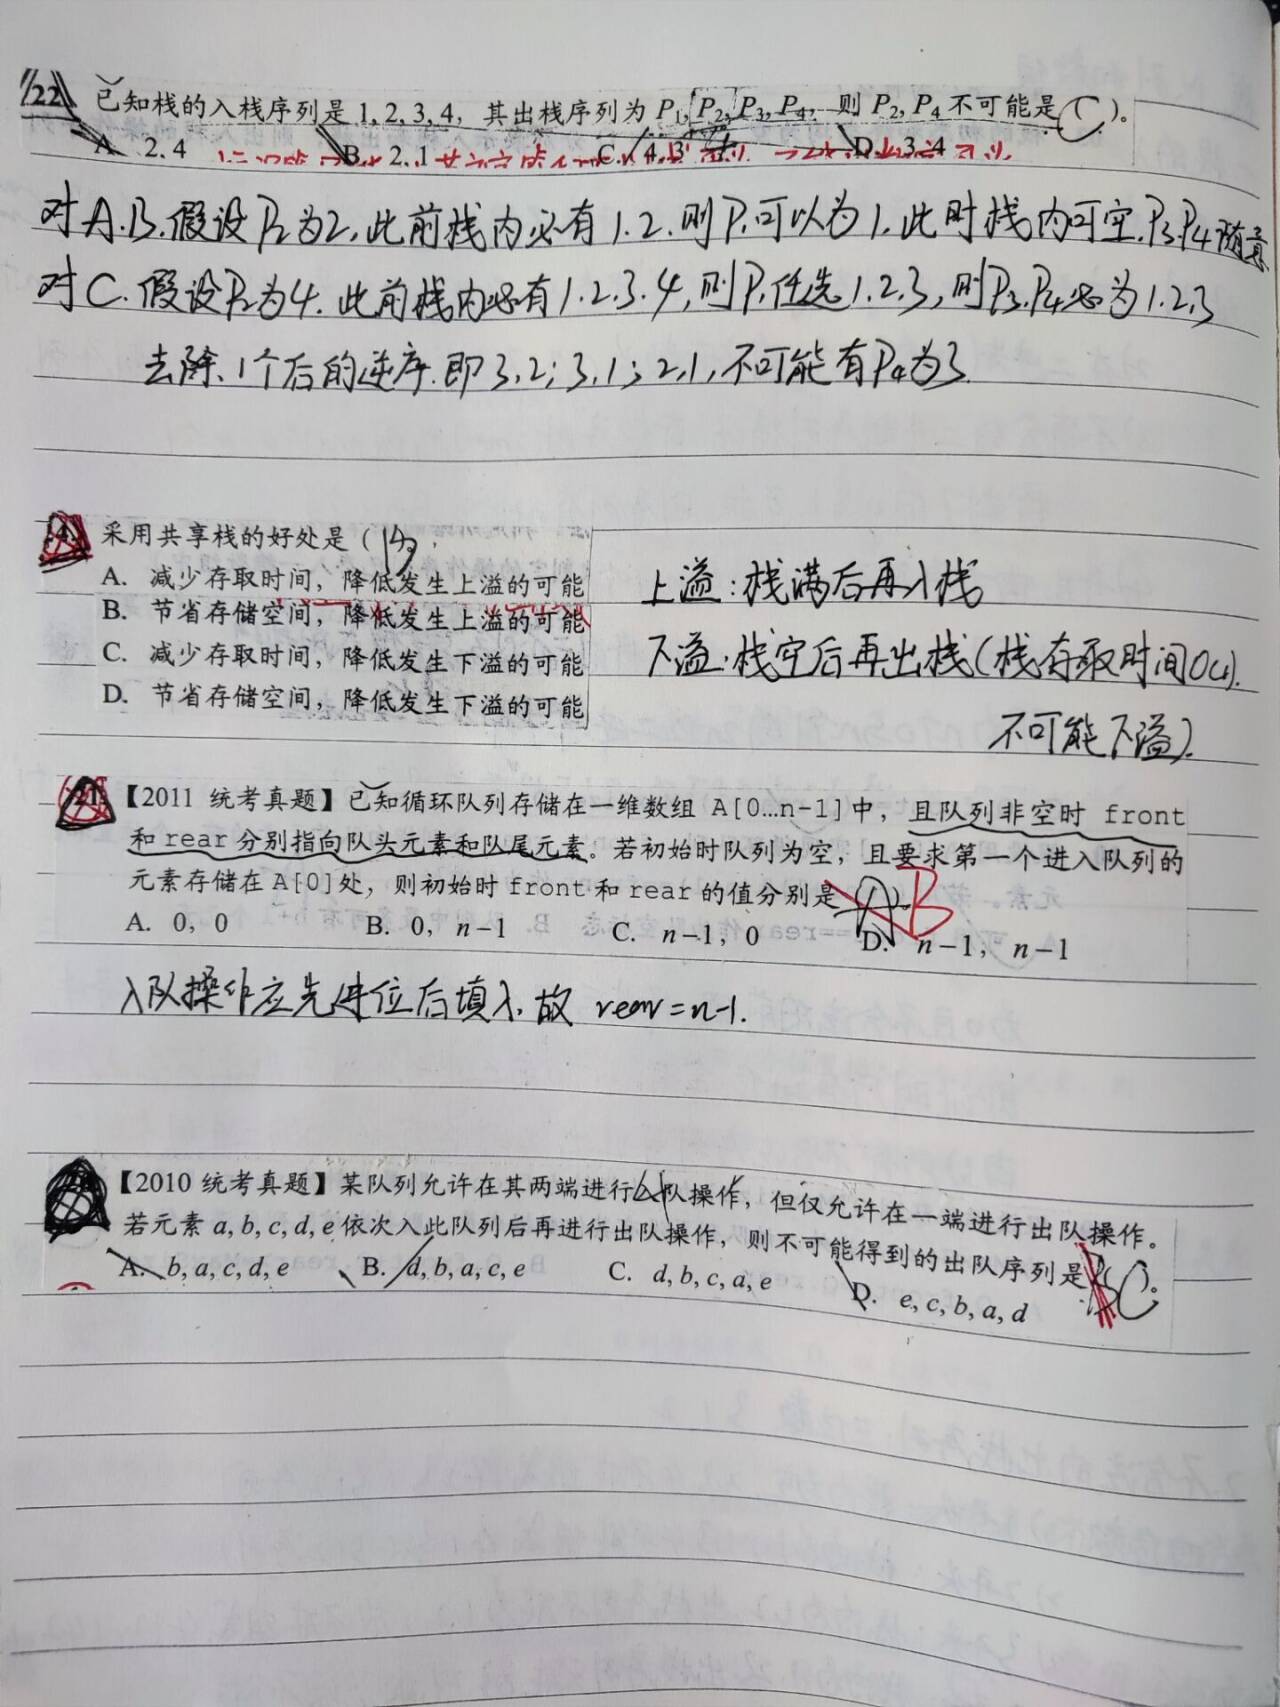 22. 已知栈的入栈序列是 1, 2, 3, 4，其出栈序列为 P₁, P₂, P₃, P₄，则 P₂, P₄ 不可能是( C )。
A. 2, 4 B. 2, 1 C. 4, 3 D. 3, 4
对A.B.假设P₂为2,此前栈内必有1.2.则P₁可以为1.此时栈内可空.P₃.P₄随意
对C.假设P₂为4.此前栈内必有1.2.3.4,则P₁任选1.2.3,则P₃.P₄必为1.2.3
去除1个后的逆序.即3,2;3,1;2,1,不可能有P₄为3.
采用共享栈的好处是（
A. 减少存取时间，降低发生上溢的可能
B. 节省存储空间，降低发生上溢的可能
C. 减少存取时间，降低发生下溢的可能
D. 节省存储空间，降低发生下溢的可能
上溢:栈满后再入栈
下溢:栈空后再出栈(栈存取时间O(1).
不可能下溢).
21. 【2011 统考真题】已知循环队列存储在一维数组 A[0…n-1]中，且队列非空时 front
和 rear 分别指向队头元素和队尾元素。若初始时队列为空，且要求第一个进入队列的
元素存储在 A[0]处，则初始时 front 和 rear 的值分别是( )。B
A. 0, 0 B. 0, n-1 C. n-1, 0 D. n-1, n-1
入队操作应先进位后填入.故 rear=n-1.
【2010 统考真题】某队列允许在其两端进行入队操作，但仅允许在一端进行出队操作。
若元素 a, b, c, d, e 依次入此队列后再进行出队操作，则不可能得到的出队序列是 C。
A. b, a, c, d, e B. d, b, a, c, e C. d, b, c, a, e D. e, c, b, a, d